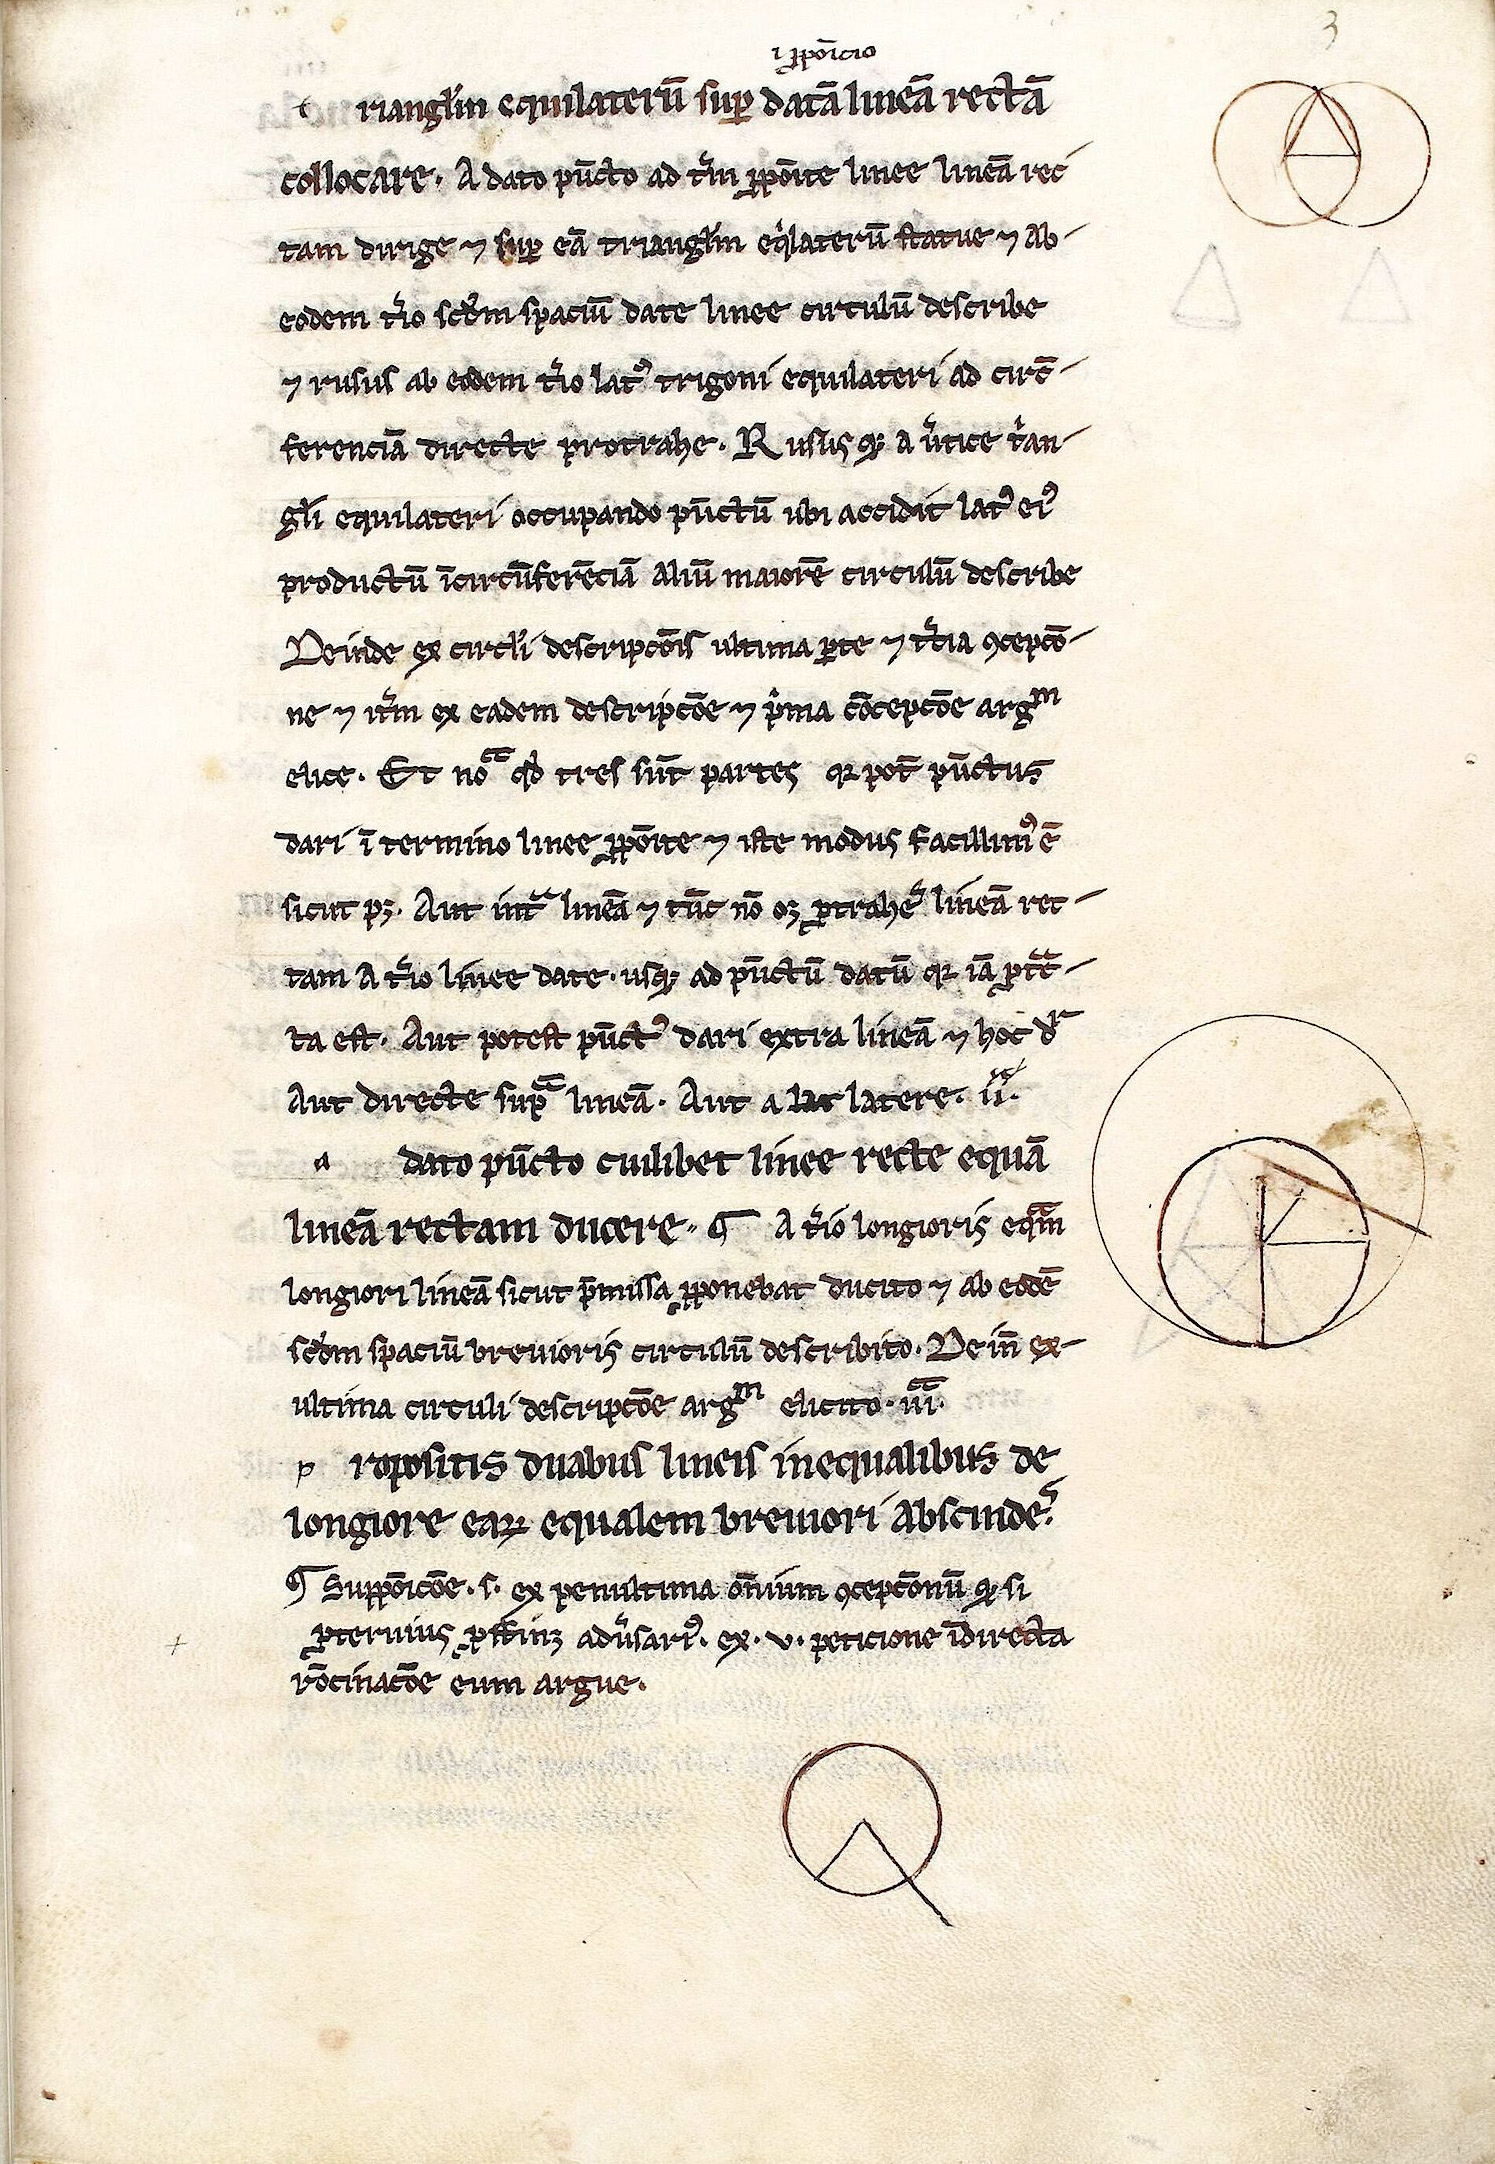 3
i ꝓpōicio
t riangl'm equilaterū suꝑ datā lineā rectā
collocare. A dato pūcto ad t'm ꝓpōite linee lineā rec
tam dirige ⁊ suꝑ eā triangl'm eqͥlaterū statue ⁊ ab-
eodem t'io scd'm spaciū date linee circulū describe
⁊ rusus ab eodem t'io latꝰ trigoni equilateri ad circ̄-
ferenciā directe protrahe. Rusus qꝫ a ủtice tͥan-
gl'i equilateri occupando pūctū ubi accidit latꝰ eiꝰ
productū īcircūferēciā aliū maiorē circulū describe
Deinde ex circl'i descripcōis ultima ꝑte ⁊ t'cia ꝯcepcō-
ne ⁊ it'm ex eadem descripcōe ⁊ pͥma cōcepcōe argᵐ
elice. Et noᵃ qd̓ tres sūt partes qꝛ pot̄ pūctus
dari ī termino linee ꝓpōite ⁊ iste modus facillimꝰ ē
sicut pꝫ. Aut intᵃ lineā ⁊ tūc nō oꝫ ꝓtrahe' lineā rec-
tam a t'io linee date. usqꝫ ad pūctū datū qꝛ iā ꝓtᵃc-
ta est. Aut potest pūctꝰ dari extra lineā ⁊ hoc dʳ
Aut directe supᵃ lineā. Aut a lat latere. ii.ᵃ
a dato pūcto cuilibet linee recte equā
lineā rectam ducere. ¶ A t'io longioris eqᵃm
longiori lineā sicut p̄missa ꝓponebat ducito ⁊ ab eodē
scd'm spaciū breuioris circulū describito. Dein̄ ex-
ultima circuli descripcōe argᵐ elicito. iii.ᵃ
p ropositis duabus lineis inequalibus de
longiore eaꝝ equalem breuiori abscinde'.
¶ Suppōicōe .s. ex penultima om̄ium ꝯcepcōnū qꝫ si
ꝓteruius ꝓstinꝫ adủsariꝰ. ex .v. peticione īdirecta
rōcinacōe eum argue.